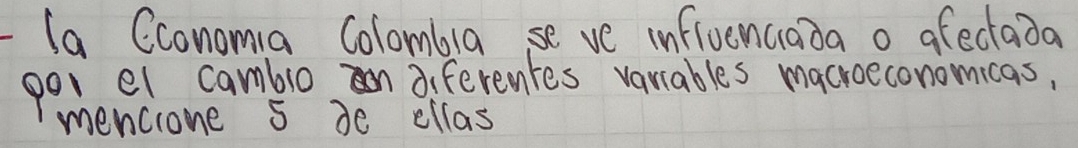 - la Economia Colombia se ve influenciada o afectada
por el cambio en diferentes variables macroeconomicas,
mencione 5 de ellas